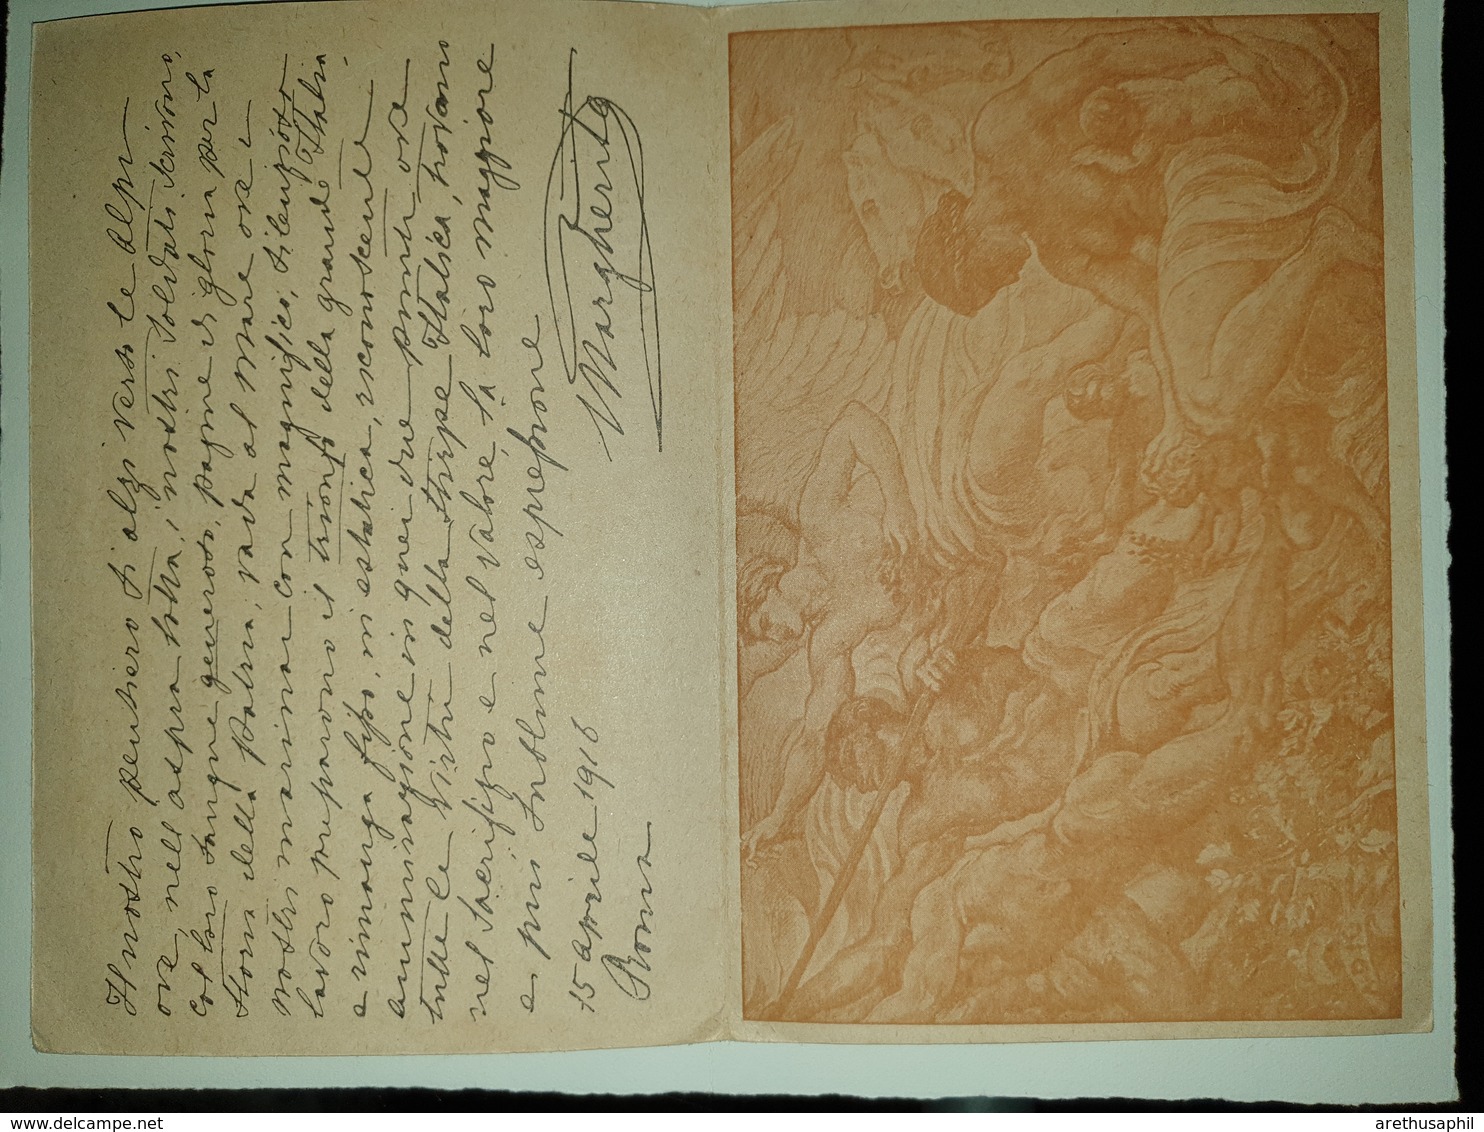 Il nostro pensiero si alzi verso le Alpi
ove, nell'aspra lotta, i nostri soldati scrivono,
col loro sangue generoso, pagine di gloria per la
storia della Patria; vada al Mare ove i
nostri marinai con magnifico, silenzioso
lavoro preparano il trionfo della grande Italia
e rimanga fisso, in estatica, riconoscente
ammirazione in quei due punti ove
tutte le Virtù della stirpe Italica, trovano
nel sacrifizio e nel valore, la loro maggiore
e più sublime espressione
Margherita
15 aprile 1916
Roma
arethusaphil